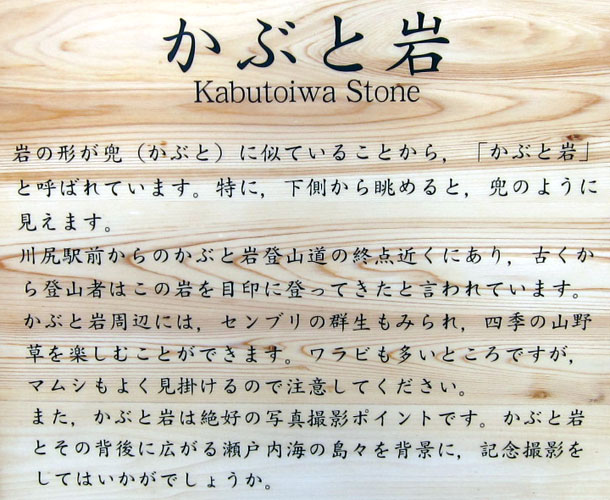 かぶと岩
Kabutoiwa Stone
岩の形が兜（かぶと）に似ていることから，「かぶと岩」
と呼ばれています。特に，下側から眺めると，兜のように
見えます。
川尻駅前からのかぶと岩登山道の終点近くにあり，古くか
ら登山者はこの岩を目印に登ってきたと言われています。
かぶと岩周辺には，センブリの群生もみられ，四季の山野
草を楽しむことができます。ワラビも多いところですが，
マムシもよく見掛けるので注意してください。
また，かぶと岩は絶好の写真撮影ポイントです。かぶと岩
とその背後に広がる瀬戸内海の島々を背景に，記念撮影を
してはいかがでしょうか。